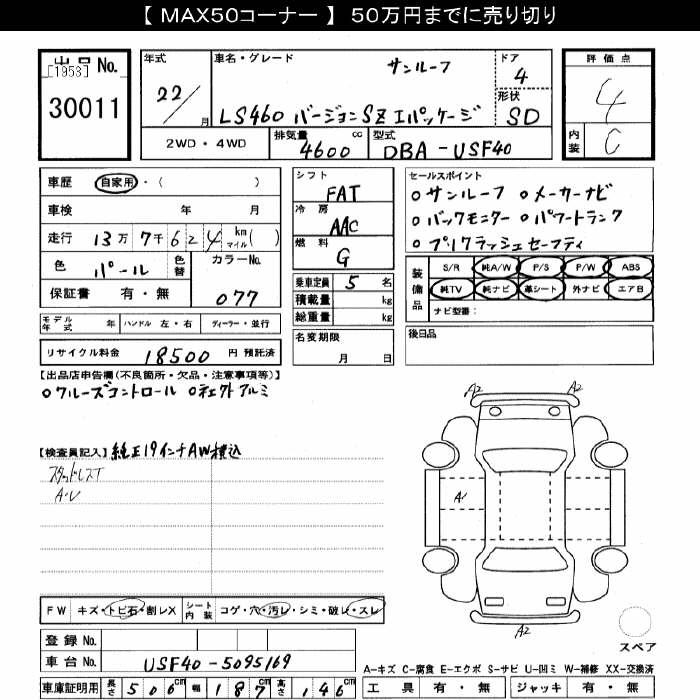 【 MAX50コーナー 】 50万円までに売り切り
出品 No.
[1953]
30011
年式
22/
月
車名・グレード
サンルーフ
LS460 バージョンSZ Iパッケージ
ドア
4
形状
SD
評価点
4
内装
C
2WD ・ 4WD
排気量
cc
4600
型式
DBA -USF40
車歴 自家用・( )
車検 年 月
走行 13万 7千 6 2 4 km マイル ( )
色 パール 色替
カラーNo.
077
保証書 有 ・ 無
モデル年式 年 ハンドル 左・右 ディーラー・並行
リサイクル料金 18500 円 預託済
シフト
FAT
冷房
AAC
燃料
G
乗車定員 5 名
積載量 kg
総重量 kg
名変期限
月 日
セールスポイント
○ サンルーフ ○ メーカーナビ
○ バックモニター ○ パワートランク
○ プリクラッシュセーフティ
装備品
S/R 純A/W P/S P/W ABS
純TV 純ナビ 革シート 外ナビ エアB
ナビ型番:
後日品
【出品店申告欄(不良箇所・欠品・注意事項等)】
○クルーズコントロール
【検査員記入】 純正19インチAW積込
スタッドレスT
A・U
A2
A2
A'
A2
スペア
FW キズ・トビ石・割レX
シート内装 コゲ・穴・汚レ・シミ・破レ・スレ
登録 No.
車台 No. USF40-5095169
車庫証明用 長さ 506 cm 幅 187 cm 高さ 146 cm
A-キズ C-腐食 E-エクボ S-サビ U-凹ミ W-補修 XX-交換済
工具 有 ・ 無 ジャッキ 有 ・ 無